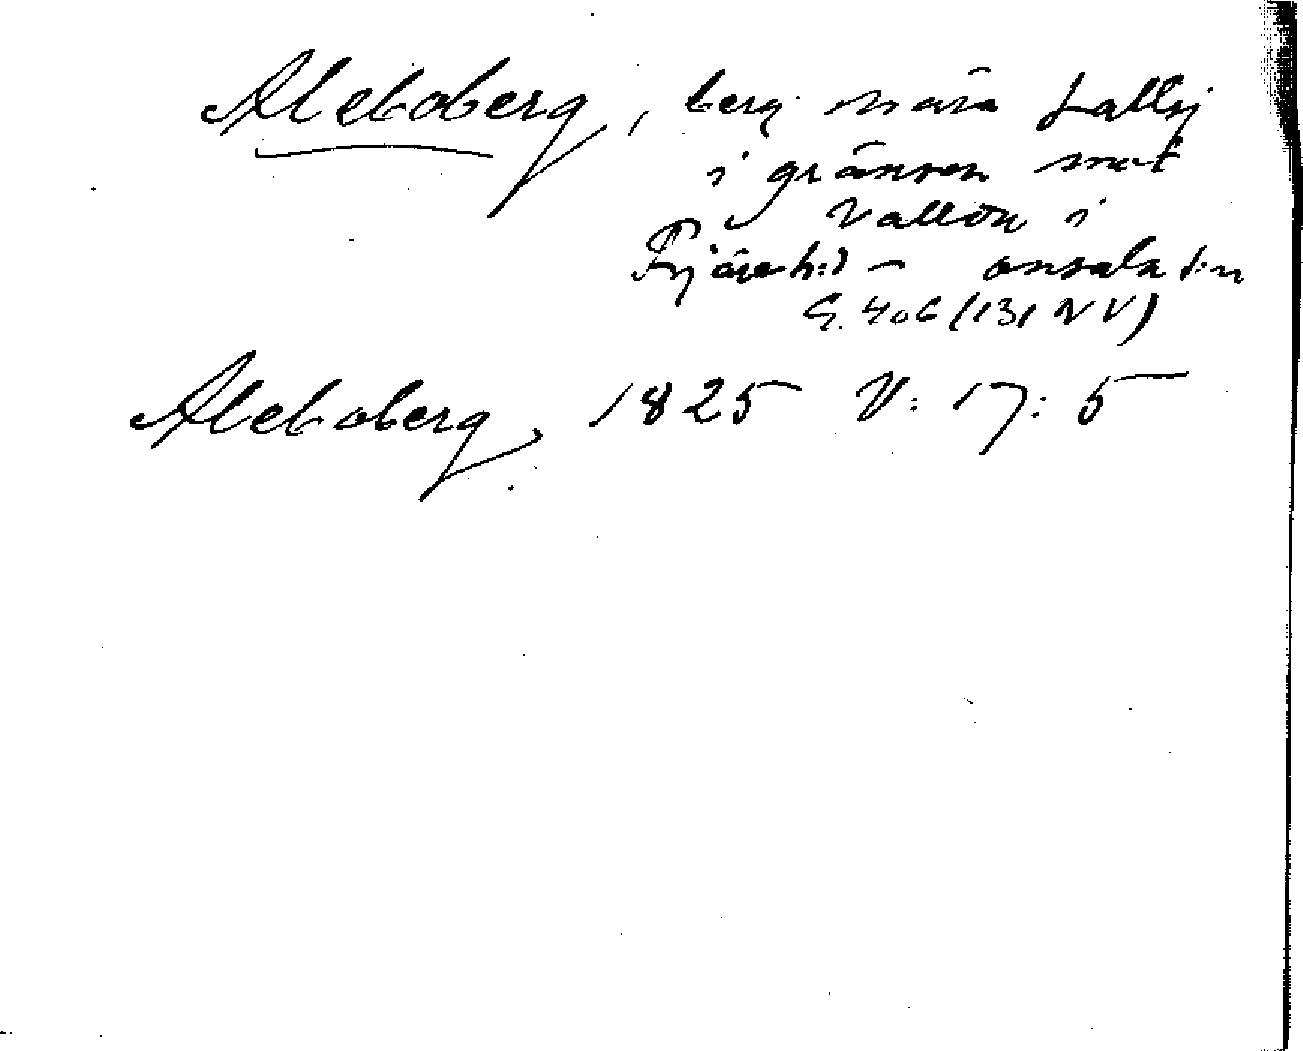 Aleboberg, berg nära
i gränsen mot
Vallda i
Fjäre h:d – onsala s:n
G. 406 (131 NV)
Aleboberg, 1825 V: 17: 5